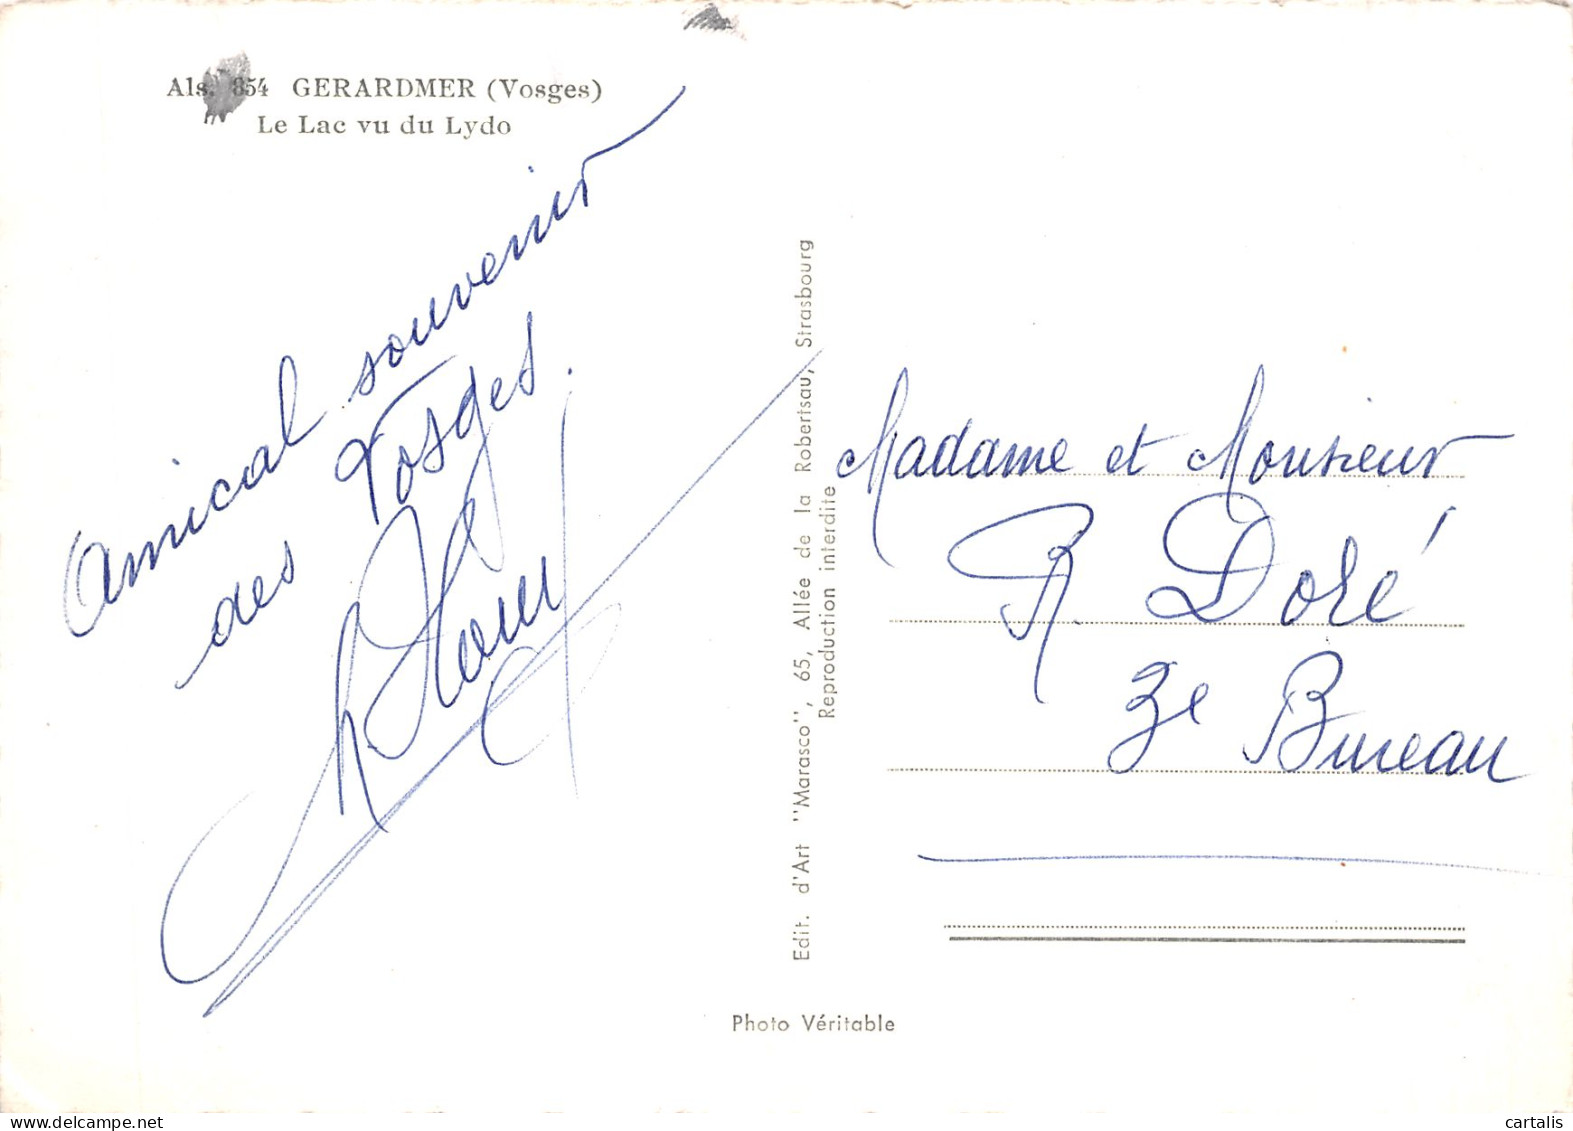 Als. 854 GERARDMER (Vosges)
Le Lac vu du Lydo
Amical souvenir
des Vosges.
Madame et Monsieur
R. Doré
3e Bureau
Edit. d'Art "Marasco", 65, Allée de la Robertsau, Strasbourg
Reproduction interdite
Photo Véritable
cartalis